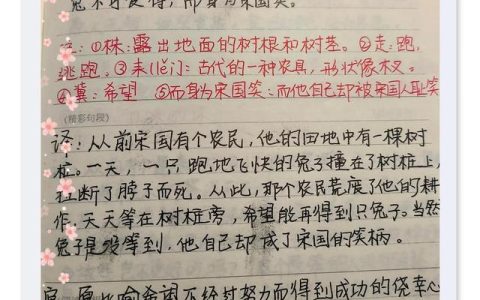 兔不可复得，而身为宋国笑。
注：①株：露出地面的树根和树茎。②走：跑，
逃跑。③耒(lěi)：古代的一种农具，形状像木叉。
④冀：希望 ⑤而身为宋国笑：而他自己却被宋国人耻笑
(精彩句段)
译：从前宋国有个农民，他的田地中有一棵树
桩。一天，一只跑地飞快的兔子撞在了树桩上，
扭断了脖子而死。从此，那个农民荒废了他的耕
作，天天等在树桩旁，希望能再得到只兔子。当然
兔子是没等到，他自己却成了宋国的笑柄。
原比喻希困不经过努力而得到成功的侥幸心